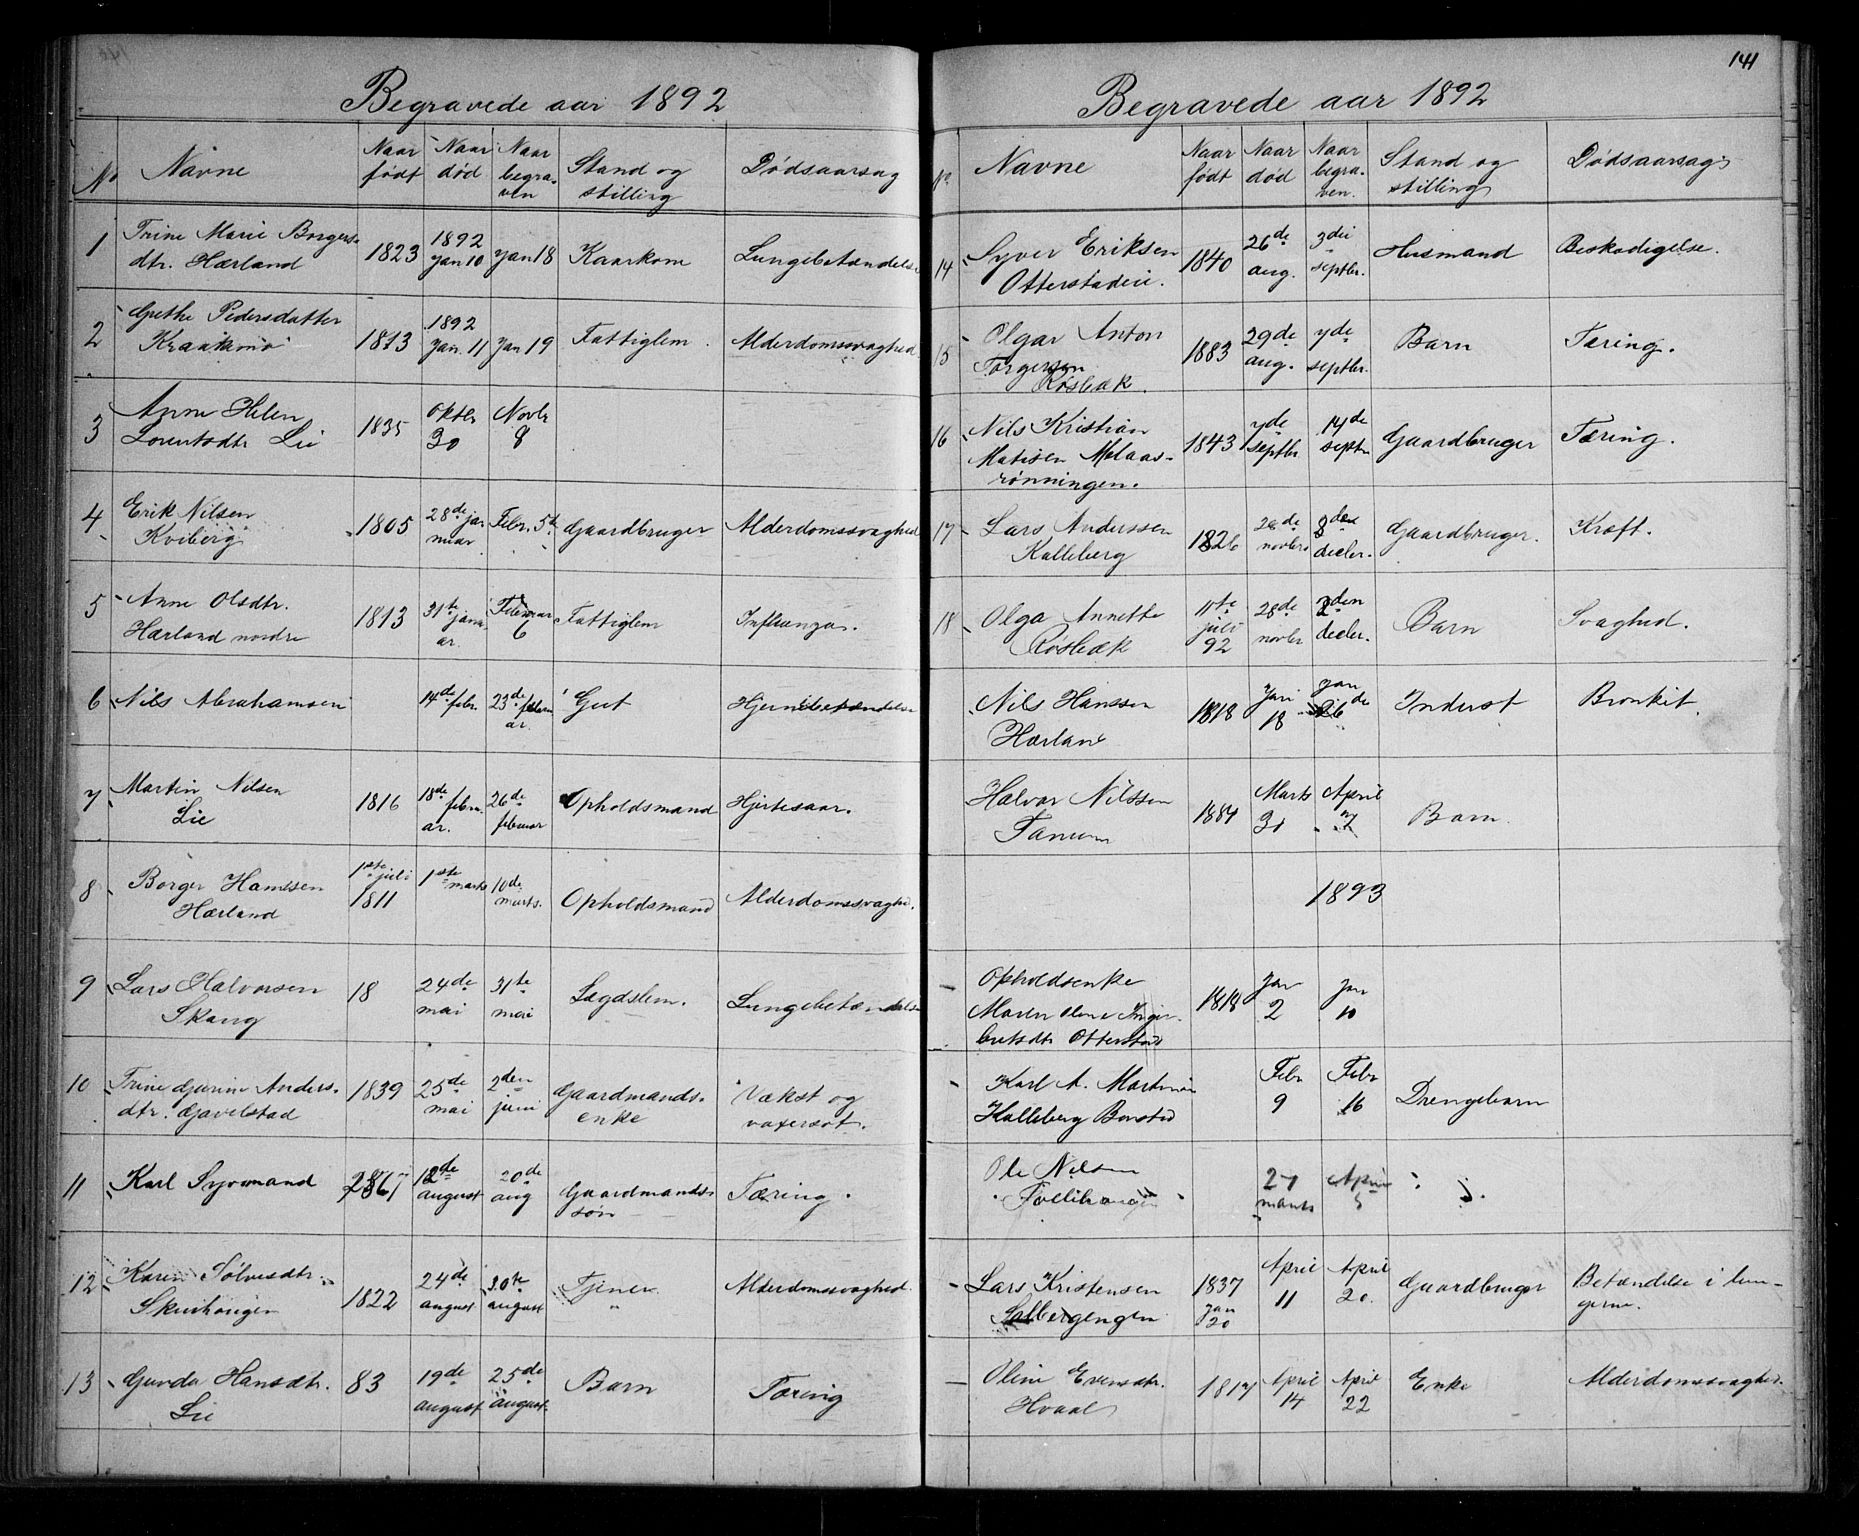 Begravede aar 1892
No Navne Naar født Naar død Naar begra-ven Stand og stilling Dødsaarsag
1 Trine Marie Borgers-
dtr. Hærland 1823 1892 Jan 10 Jan 18 Kaarkone Lungebetændelse
2 Grethe Pedersdatter
Kraakmo 1813 1892 Jan. 11 Jan 19 Fattiglem. Alderdomssvaghed
3 Anne Helen
Lorentsdtr Lie 1835 Oktbr 30 Novbr 8
4 Erik Nilsen
Kviberg 1805 28de januar Febr. 5te Gaardbruger Alderdomssvaghed
5 Anne Olsdtr.
Hærland nordre 1813 31te januar. Februar 6 Fattiglem Influenza.
6 Nils Abrahamsen 14de febr. 23de februar. Gut Hjernebetændelse
7 Martin Nilsen
Lie 1816 18de februar. 26de februar Opholdsmand Hjertesaar.
8 Borger Hanssen
Hærland 1ste juli 1811 1ste marts 10de marts. Opholdsmand Alderdomssvaghed.
9 Lars Halvorsen
Skaug 18 24de mai 31te mai Lægdslem. Lungebetændelse
10 Trine Gurine Anders-
dtr. Gavelstad 1839 25de mai 2den juni Gaardmands-
enke Vækst og
vatersot.
11 Karl Syvmand 1867 12de august 20de aug Gaardmands-
søn Tæring.
12 Karen Sølvesdtr.
Skurhougen 1822 24de august 30te august Tjener Alderdomssvaghed.
13 Gunda Hansdtr.
Lie 83 19de august 25de august. Barn Tæring
141
Begravede aar 1892
No Navne Naar født Naar død Naar begra-ven. Stand og stilling Dødsaarsag
14 Syver Eriksen
Otterstadeie. 1840 26de aug. 3die septbr. Husmand Beskadigelse.
15 Olgar Anton
Torgersen
Røsbæk. 1883 29de aug. 7de septbr. Barn Tæring.
16 Nils Kristian
Matisen Melaas-
rønningen. 1843 7de septbr 14de septr Gaardbruger Tæring.
17 Lars Anderssen
Kalleberg 1826 28de novbr 8de decbr. Gaardbruger. Kræft.
18 Olga Annette
Røsbæk 11te juli 92 28de novbr 2den decbr. Barn Svaghed.
Nils Hanssen
Hærland 1818 Jan 18 Jan 26de Inderst Bronkit.
Halvor Nilssen
Tanum 1884 Marts 30 April 7 Barn.
1893
Opholdsenke
Maren Oline Inge-
bretsdtr Otterstad 1818 Jan 2 Jan 10
Karl A. Martinsen
Kalleberg Bonsted Febr 9 Febr 16 Drengebarn
Ole Nilsen
27 marts April 5
Lars Kristensen
Solbergengen 1837 Jan 20 April 11 April 20. Gaardbruger Betændelse i lun-
gerne.
Oline Evensdtr.
Hvaal 1817 April 14 April 22 Enke Alderdomssvaghed.